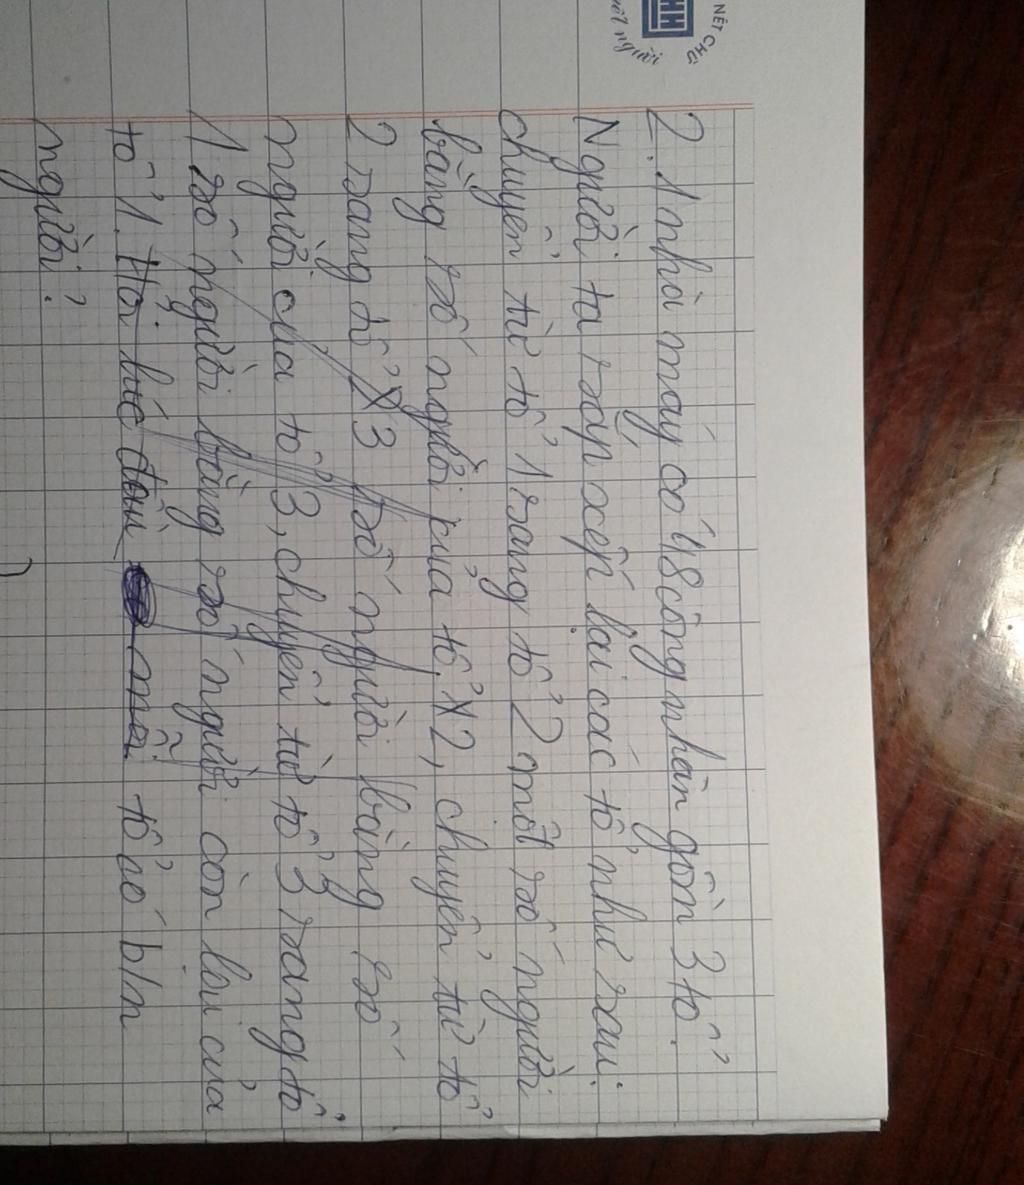 NÉT CHỮ
nết người
2. 1 nhà máy có 48 công nhân gồm 3 tổ.
Người ta sắp xếp lại các tổ như sau:
chuyển từ tổ 1 sang tổ 2 một số người
bằng số người của tổ 2, chuyển từ tổ
2 sang tổ 3 số người bằng số
người của tổ 3, chuyển từ tổ 3 sang tổ
1 số người bằng số người còn lại của
tổ 1. Hỏi lúc đầu mỗi tổ có b/n
người?